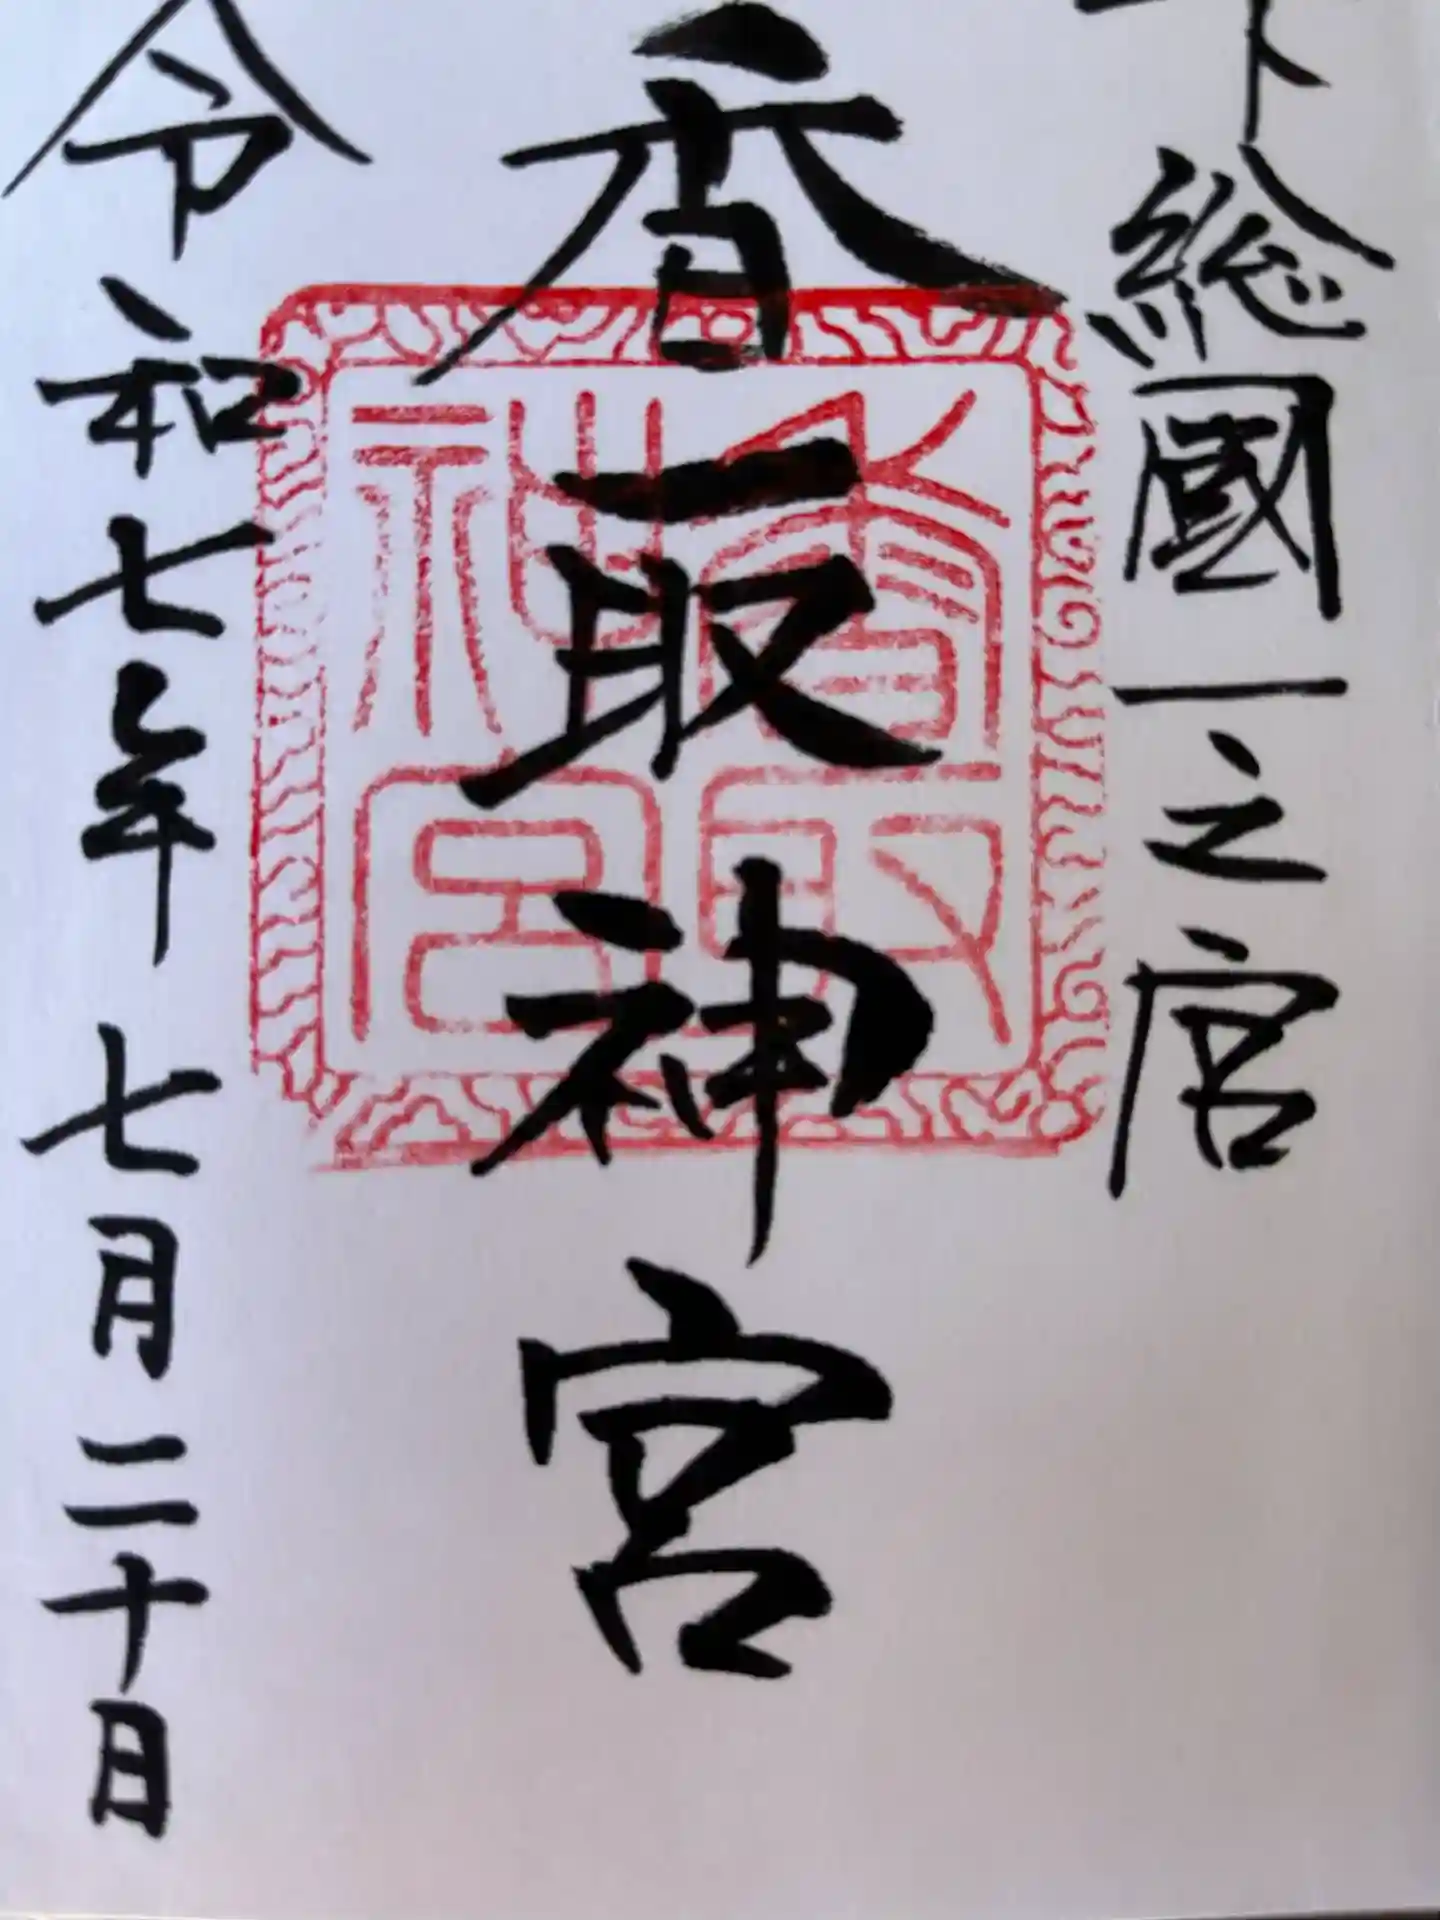 下総國一之宮
香取神宮
香取神宮
令和七年 七月二十日